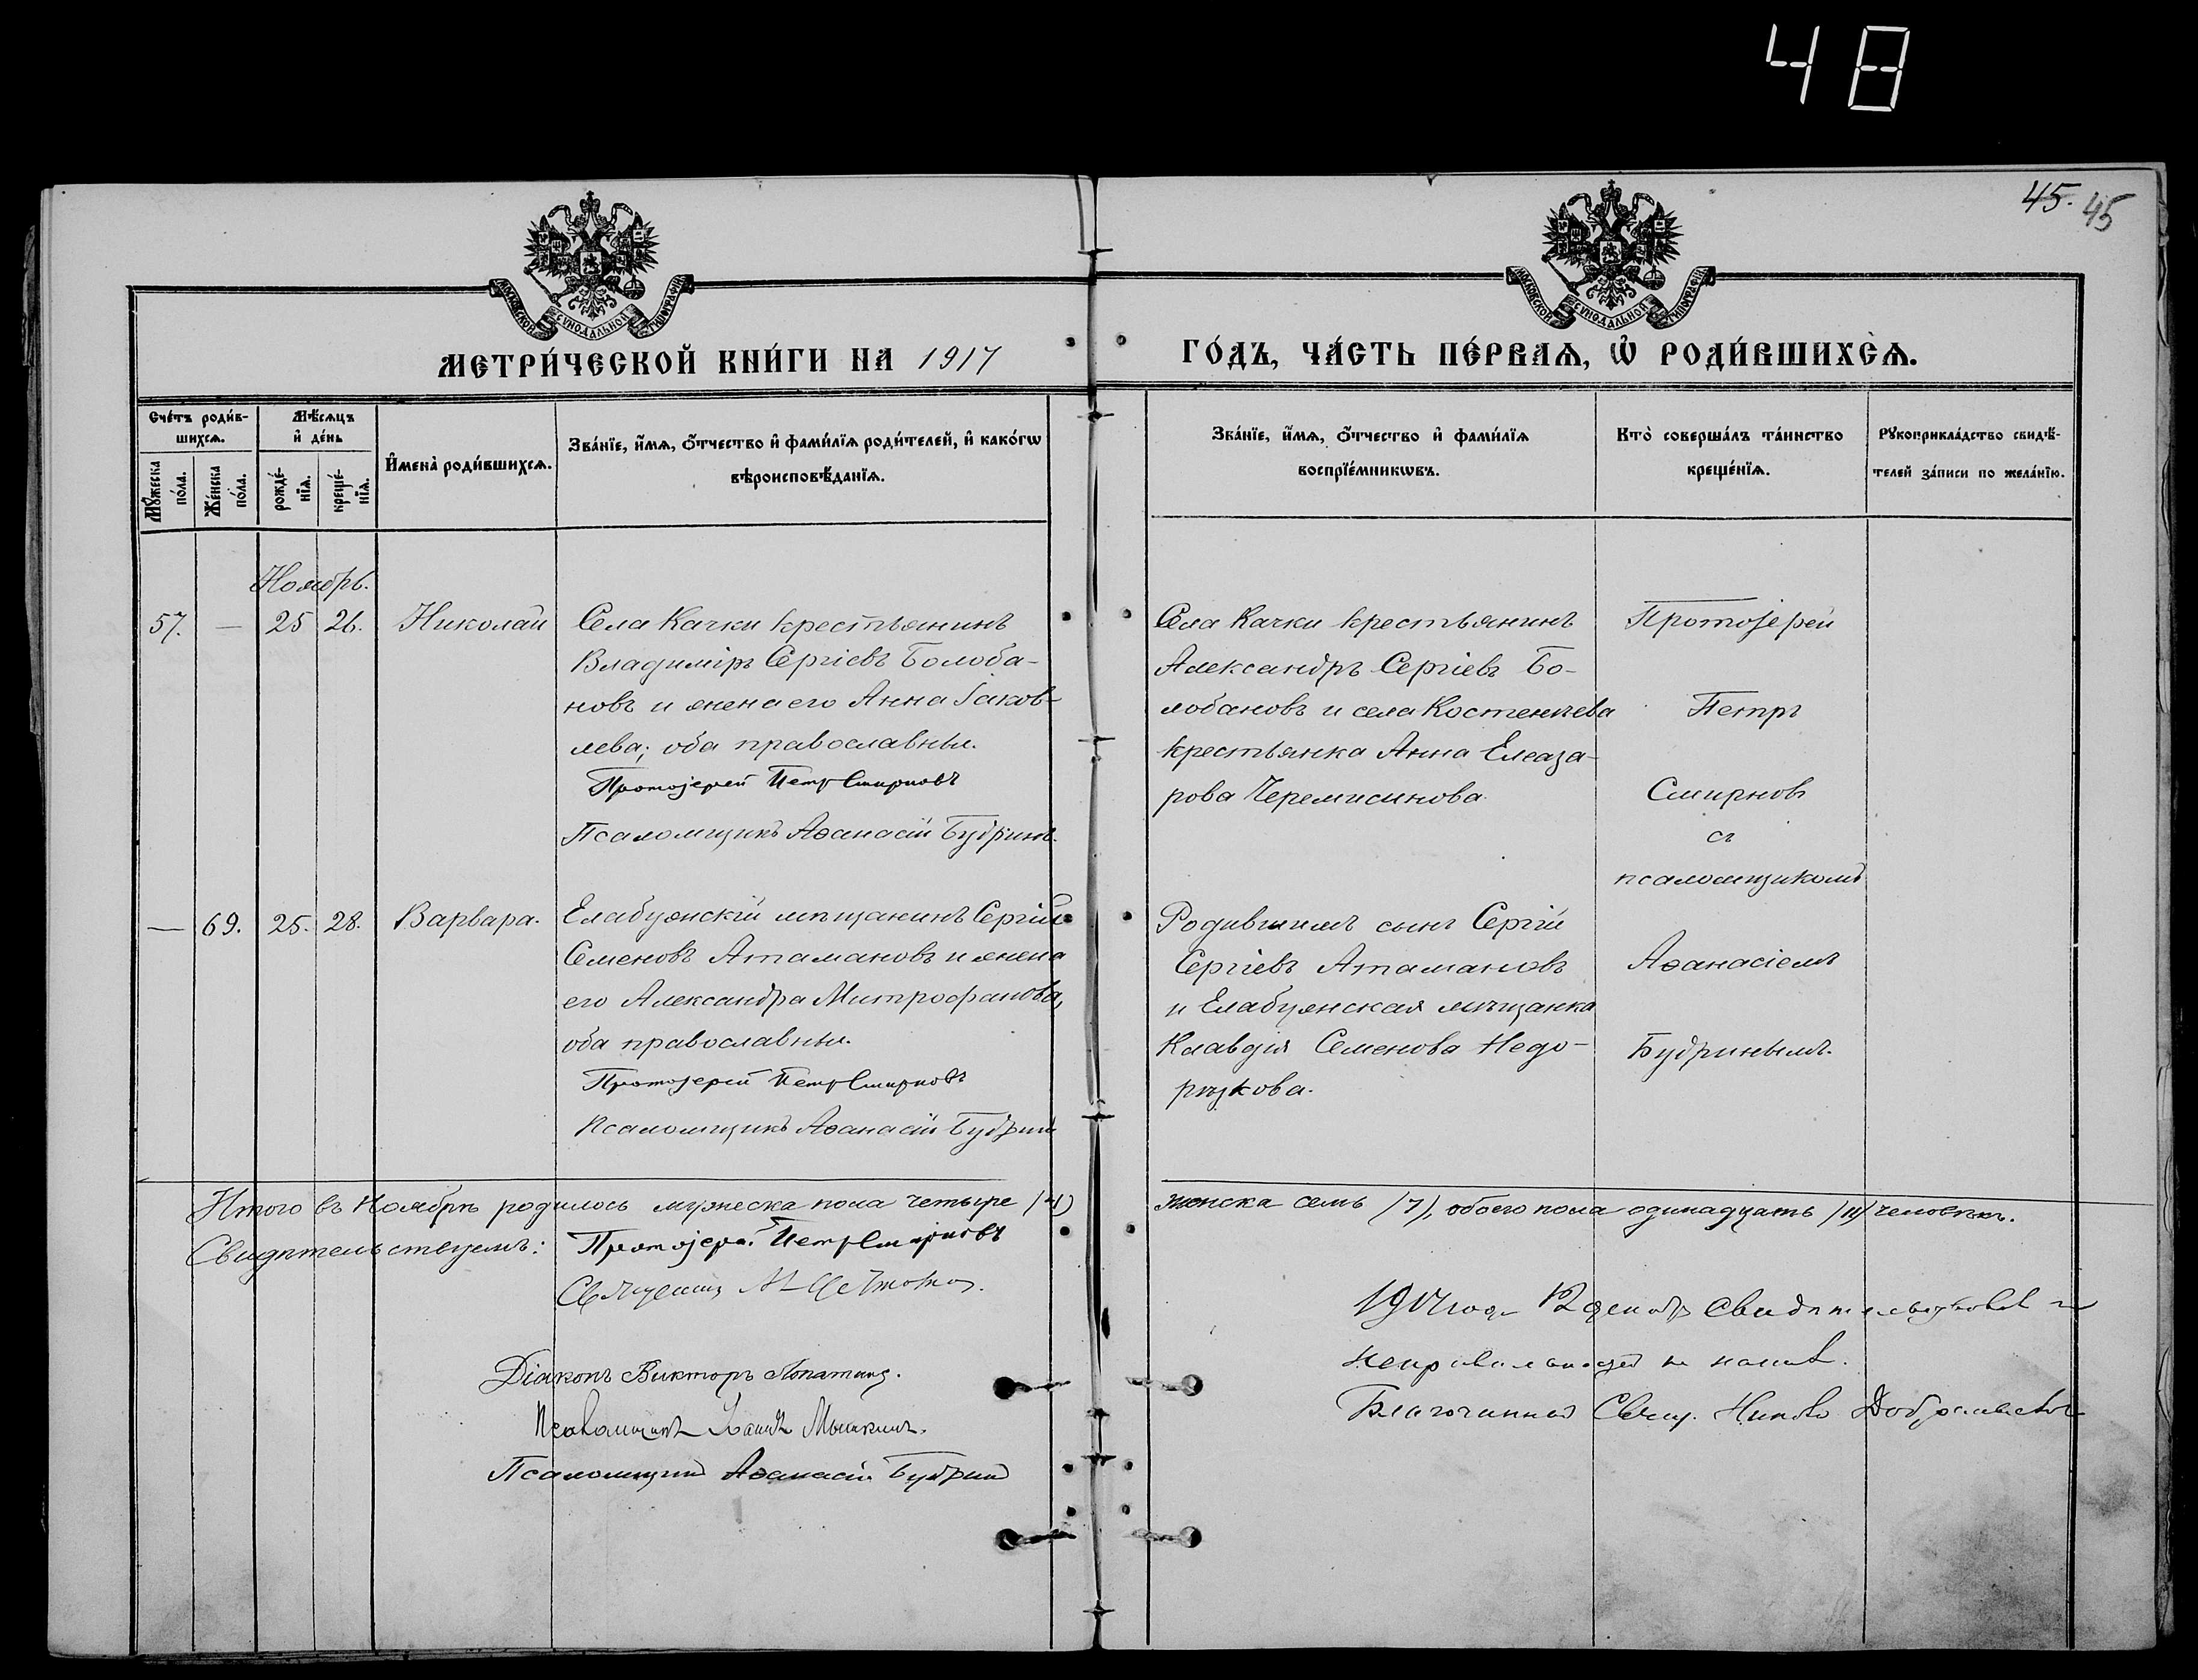 48
45. 45
МОСКОВСКОЙ СѴНОДАЛЬНОЙ ТИПОГРАФІИ
МОСКОВСКОЙ СѴНОДАЛЬНОЙ ТИПОГРАФІИ
МЕТРИ́ЧЕСКОЙ КНИ́ГИ НА 1917
ГО́ДЪ, ЧА́СТЬ ПЕ́РВАѦ, Ѡ҆ РОДИ́ВШИХСѦ.
Сче́тъ роди́в-
шихсѧ.
Мꙋ́жеска
по́ла.
Же́нска
по́ла.
Мѣ́сѧцъ
и҆ де́нь
рожде́-
нїѧ.
креще́-
нїѧ.
И҆мена̀ роди́вшихсѧ.
Зва́нїе, и҆́мѧ, ѻ҆́тчество и҆ фами́лїѧ роди́телей, и҆ како́гѡ
вѣроисповѣ́данїѧ.
Зва́нїе, и҆́мѧ, ѻ҆́тчество и҆ фами́лїѧ
воспрїе́мникѡвъ.
Кто̀ соверша́лъ та́инство
креще́нїѧ.
Рꙋкоприкла́дство свидѣ́-
телей за́писи по жела́нїю.
Ноябрь.
57. — 25 26. Николай
Села Качки крестьянинъ
Владиміръ Сергіевъ Болоба-
новъ и жена его Анна Іаков-
лева; оба православные.
Протоіерей Петръ Смирновъ
Псаломщикъ Аѳанасій Будринъ.
Села Качки крестьянинъ
Александръ Сергіевъ Бо-
лобановъ и села Костенѣева
крестьянка Анна Елеаза-
рова Черемисинова.
Протоіерей
Петръ
Смирновъ
съ
псаломщикомъ
— 69. 25. 28. Варвара.
Елабужскій мѣщанинъ Сергій
Семеновъ Атамановъ и жена
его Александра Митрофанова,
оба православные.
Протоіерей Петръ Смирновъ
Псаломщикъ Аѳанасій Будринъ
Родившимъ сынъ Сергій
Сергіевъ Атамановъ
и Елабужская мѣщанка
Клавдія Семенова Недо-
рѣзкова.
Аѳанасіемъ
Будринымъ.
Итого въ Ноябрѣ родилось мужеска пола четыре /4/
женска семь /7/, обоего пола одинадцать /11/ человѣкъ.
Свидѣтельствуемъ: Протоіерей Петръ Смирновъ
Священникъ
Діаконъ Викторъ Лопатинъ.
Псаломщикъ Іоаннъ Мышкинъ.
Псаломщикъ Аѳанасій Будринъ
1917 года 12 декабр свидѣтельствовалъ и
неправильностей не нашелъ.
Благочинный Свящ.